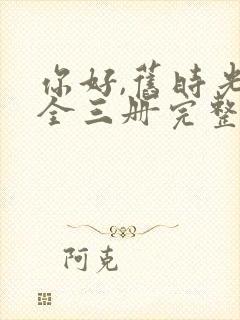 你好,旧时光
全三册完整
阿克